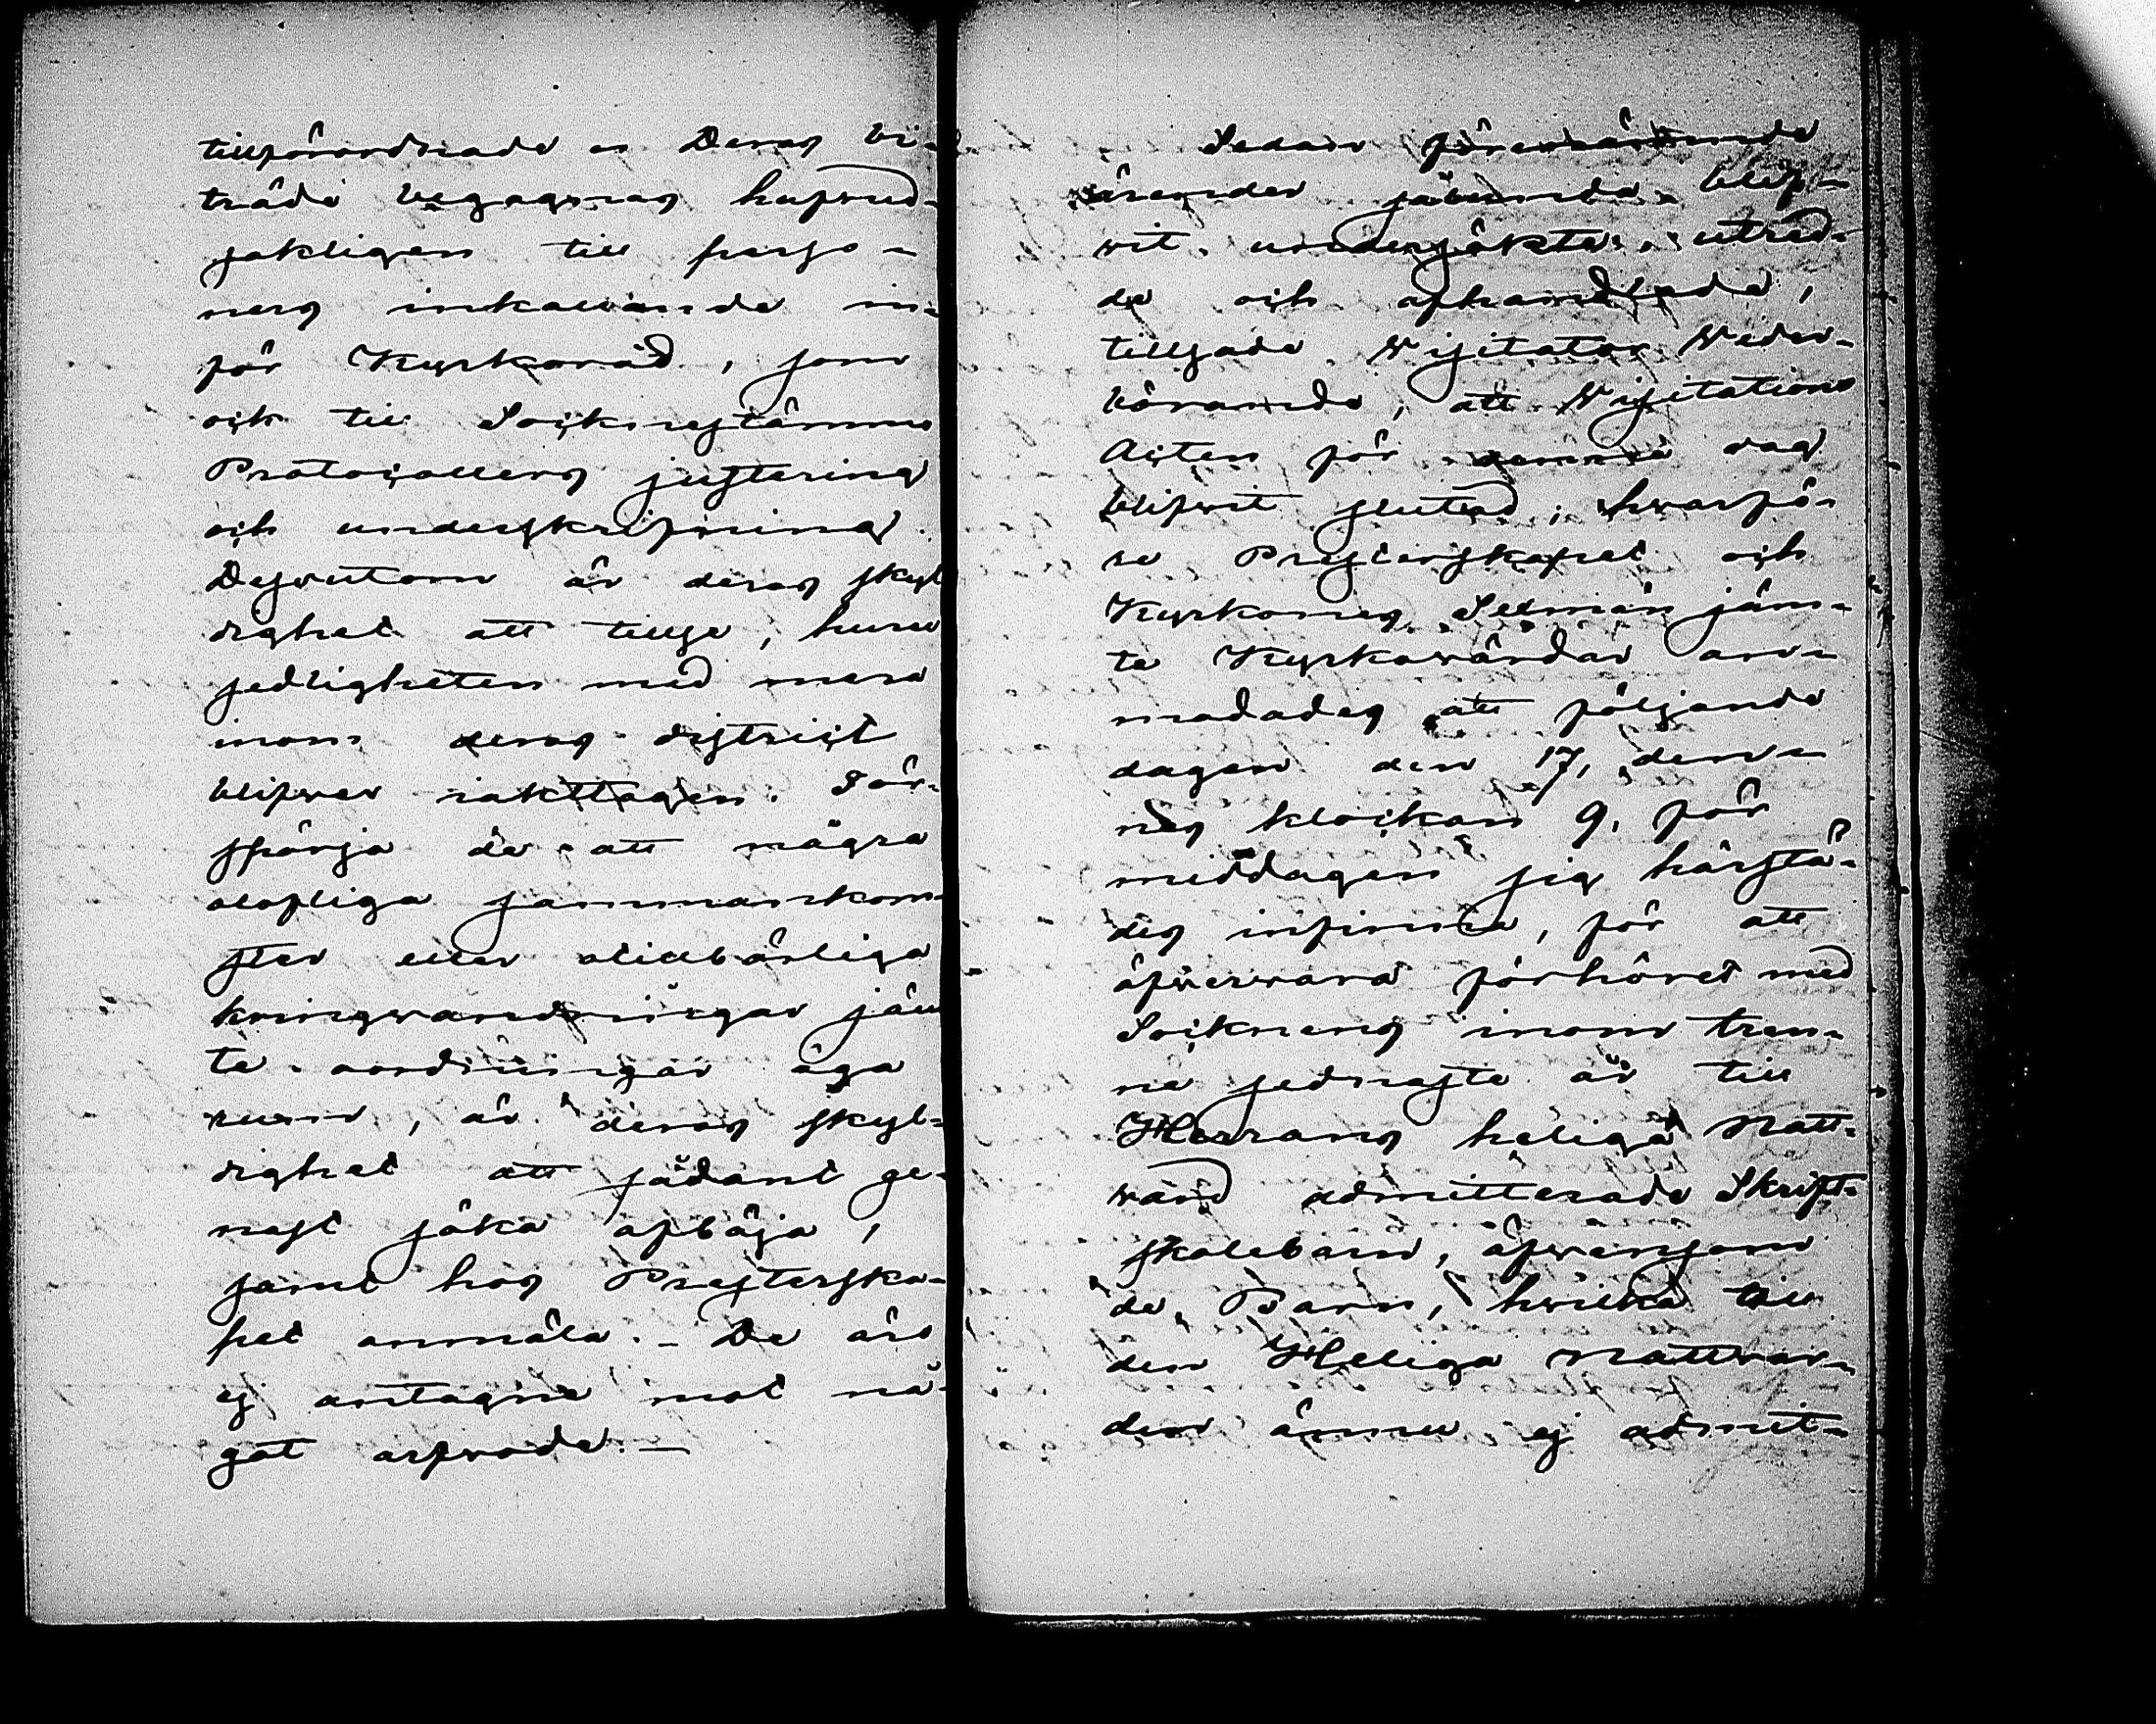 tillförordnade. Deras bi-
träde begagnas hufvud-
sakligen till perso-
ners inkallande in-
för Kyrkoråd, som
och till Sockenstämmo
Protocollers justering
och underskrifning.
Dessutom är deras skyl
dighet att tillse, huru
sedligheten med mera
inom deras district
blifver iakttagen. För-
spörja de att några
olofliga sammankom-
ster eller otillbörliga
kringvandringar jäm
te oordningar äga
rum, är deras skyl-
dighet att sådant ge-
nast söka afböja,
samt hos Presterska-
pet anmäla. – De äro
ej antagne mot nå-
got arfvode. –
Sedan förenämnde
ärender sålunda blif-
vit undersökte, utred-
de och afhandlade,
tillsade Visitator Veder-
börande, att Visitations
Acten för denna dag
blifvit slutad, hvarfö-
re Presterskapet och
Kyrkones Sexmän jäm-
te Kyrkovärdar an-
modades att följande
dagen den 17, den-
nes klockan 9, för
middagen sig härstä-
des infinna, för att
öfvervara förhöret med
Socknens inom tren-
ne sednaste år till
Herrans heliga Natt-
vard admitterade Skrift-
skolebarn, äfvensom
de Barn, hvilka till
den Heliga Nattvar-
den ännu ej admit-